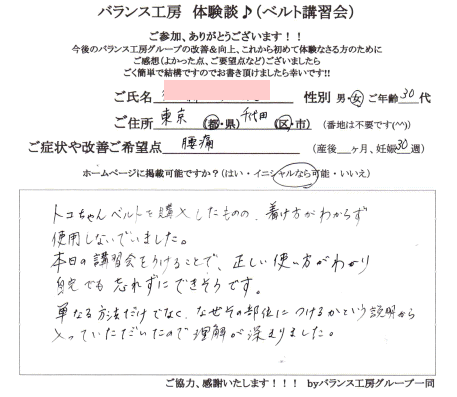 バランス工房　体験談♪（ベルト講習会）
ご参加、ありがとうございます！！
今後のバランス工房グループの改善＆向上、これから初めて体験なさる方のために
ご感想（よかった点、ご要望点など）ございましたら
ごく簡単で結構ですのでお書き頂けましたら幸いです!!
ご氏名　性別 男・女 ご年齢 30 代
ご住所 東京（都・県）千代田（区・市）（番地は不要です(^^)）
ご症状や改善ご希望点 腰痛（産後 ヶ月、妊娠 30 週）
ホームページに掲載可能ですか？（はい・イニシャルなら可能・いいえ）
トコちゃんベルトを購入したものの、着け方がわからず
使用しないでいました。
本日の講習会をうけることで、正しい使い方がわかり
自宅でも忘れずにできそうです。
単なる方法だけでなく、なぜその部位につけるかという説明から
入っていただいたので理解が深まりました。
ご協力、感謝いたします！！！　byバランス工房グループ一同